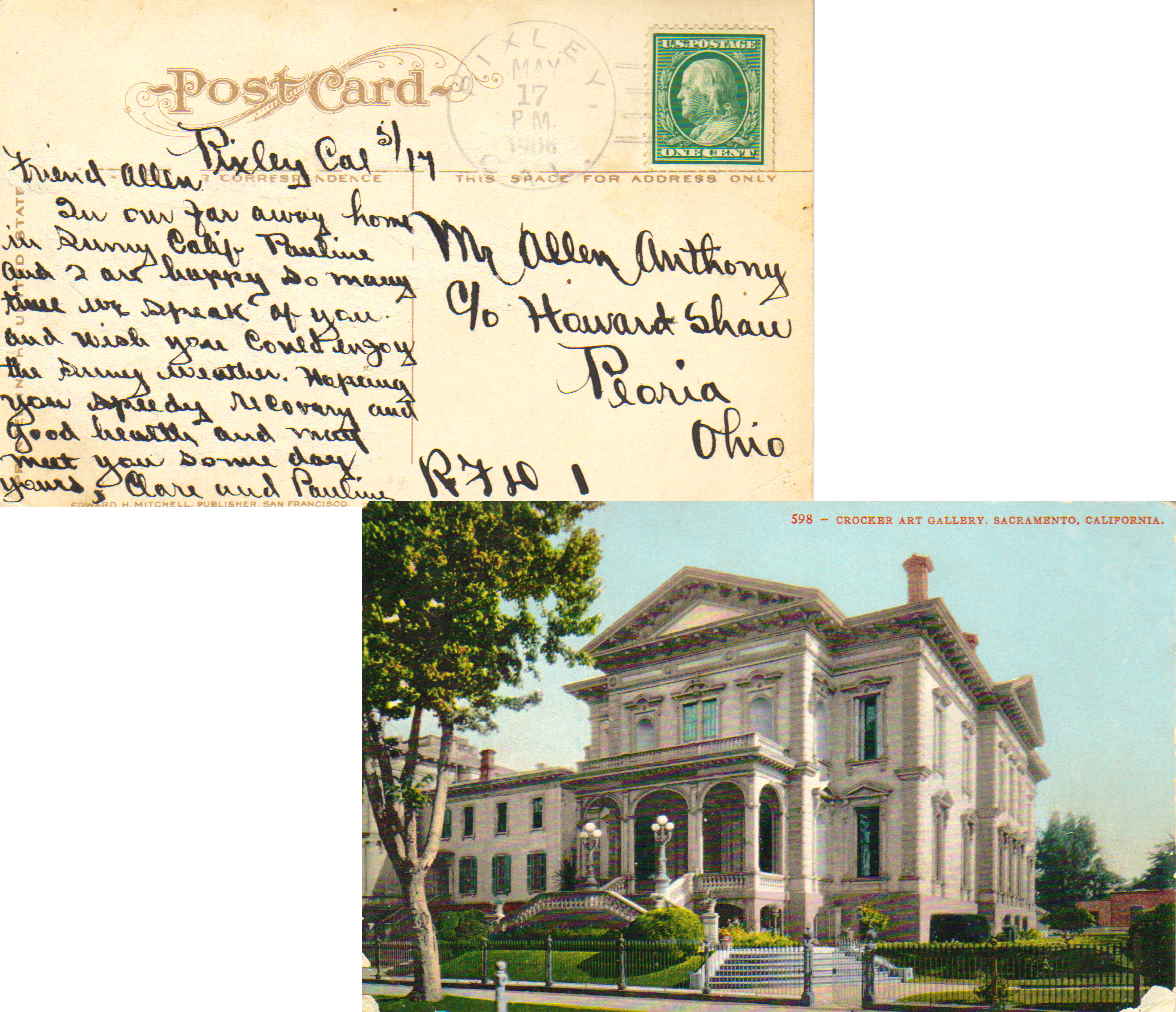 Post Card
PIXLEY
MAY
17
P.M.
CAL.
U.S. POSTAGE
ONE CENT
Pixley Cal 5/17
CORRESPONDENCE
THIS SPACE FOR ADDRESS ONLY
Friend Allen
In our far away home
in Sunny Calif Pauline
and I are happy so many
time we speak of you
and wish you could enjoy
the sunny weather. Hopeing
you speedy recovary and
good health and may
meet you some day
yours, Clare and Pauline
Mr Allen Anthony
c/o Howard Shaw
Peoria
Ohio
RFD 1
EDWARD H. MITCHELL, PUBLISHER, SAN FRANCISCO
598 – CROCKER ART GALLERY. SACRAMENTO, CALIFORNIA.